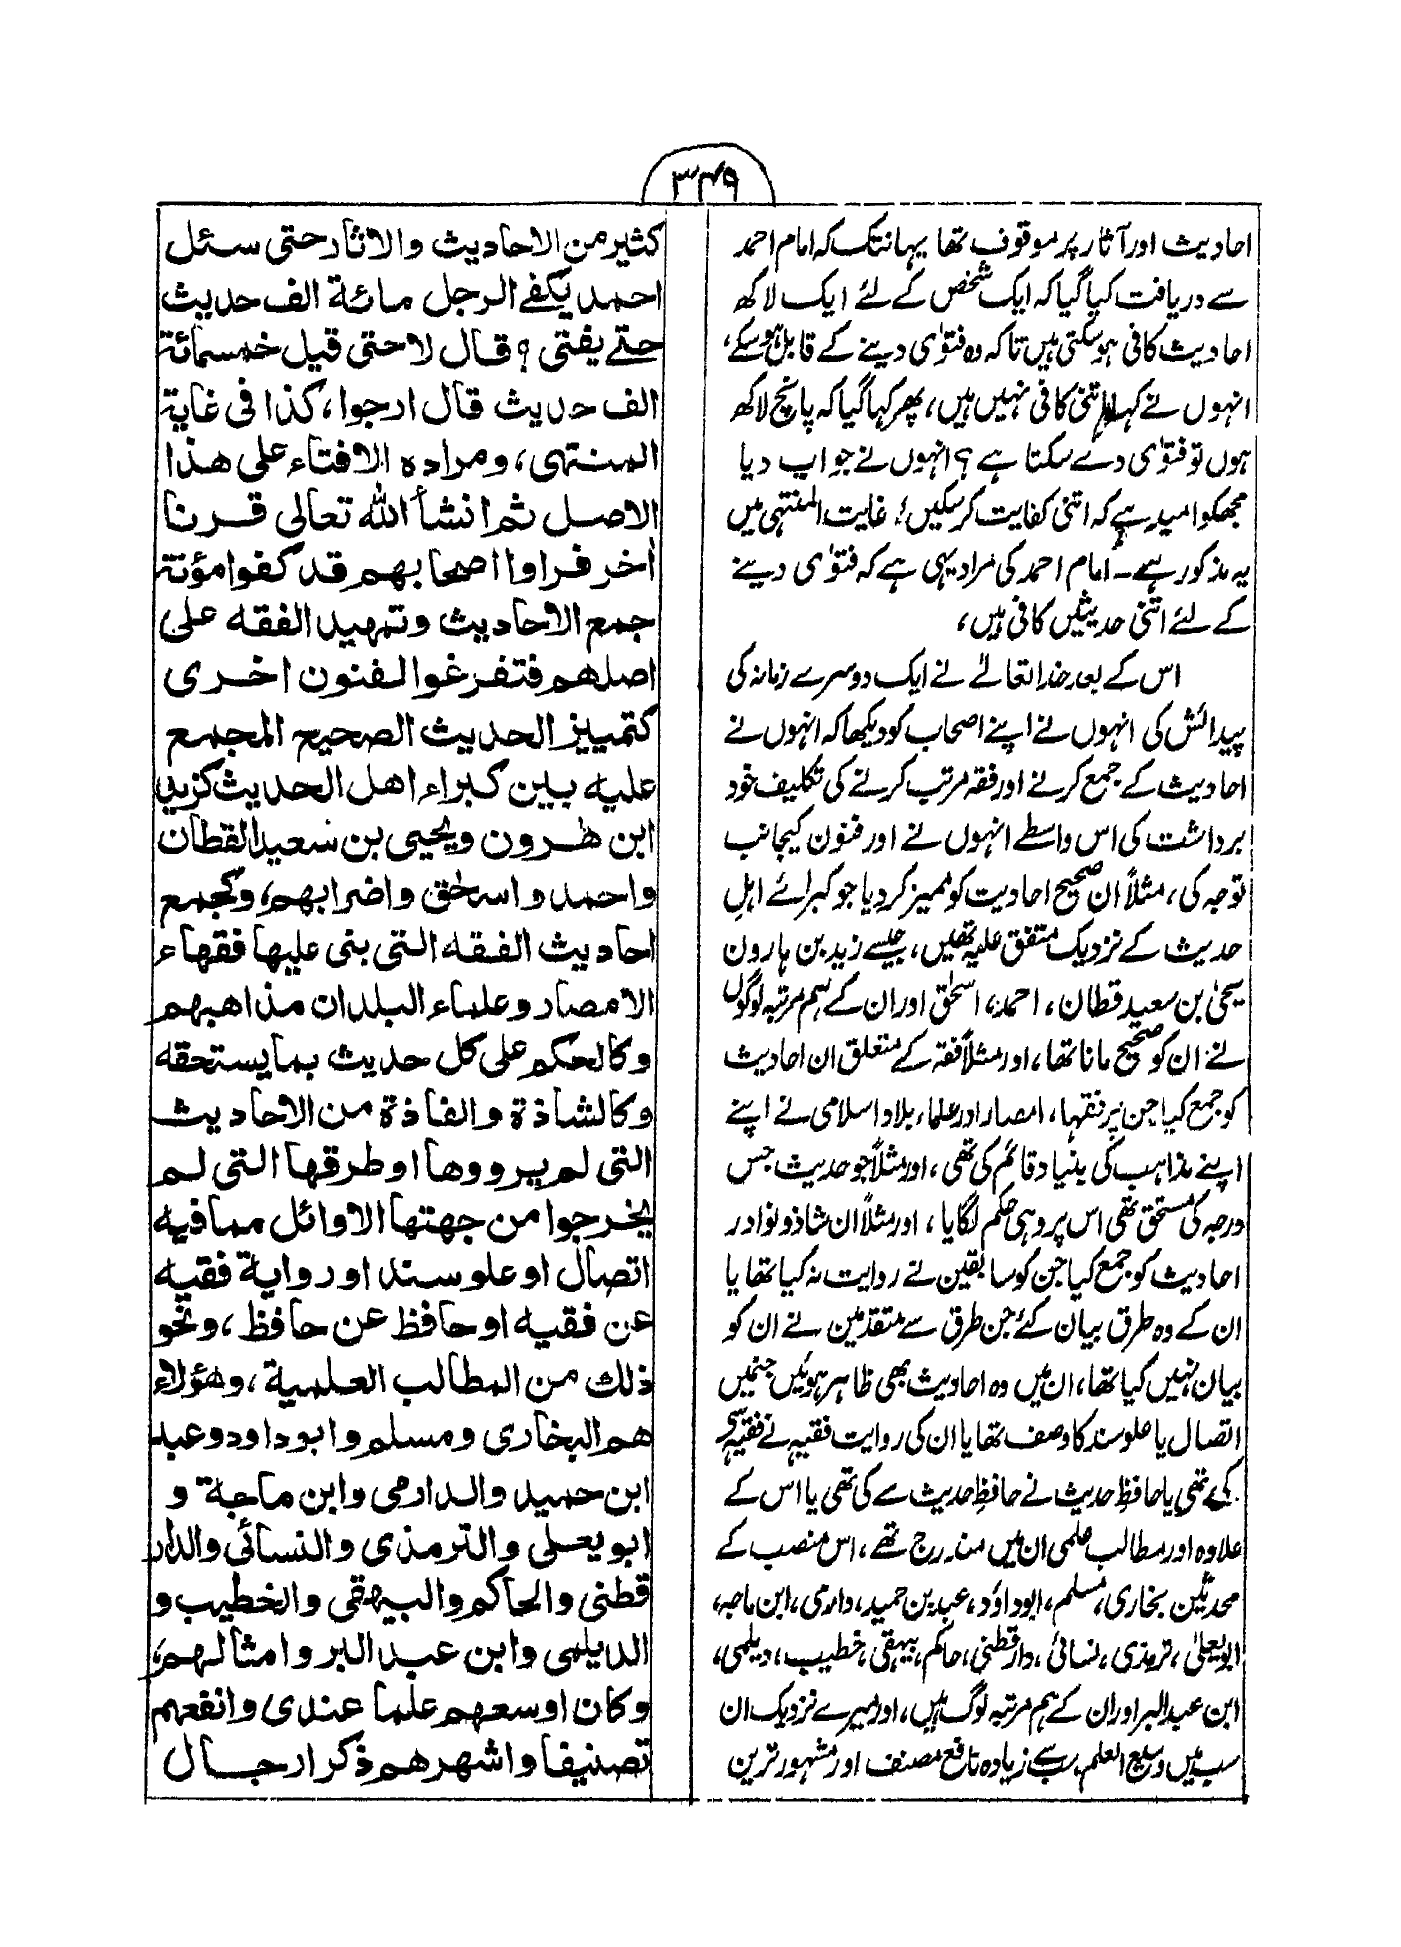 ۳۴۹
احادیث اور آثار پر موقوف تھا یہانتک کہ امام احمد
سے دریافت کیا گیا کہ ایک شخص کے لئے ایک لاکھ
احادیث کافی ہوسکتی ہیں تاکہ وہ فتوٰی دینے کے قابل ہوسکے،
انہوں نے کہا اتنی کافی نہیں ہیں، پھر کہا گیا کہ پانچ لاکھ
ہوں تو فتوٰی دے سکتا ہے؟ انہوں نے جواب دیا
مجھکو امید ہے کہ اتنی کفایت کرسکیں، غایت المنتہی میں
یہ مذکور ہے۔ امام احمد کی مراد یہی ہے کہ فتوٰی دینے
کے لئے اتنی حدیثیں کافی ہیں،
اس کے بعد خدا تعالٰے نے ایک دوسرے زمانہ کی
پیدائش کی انہوں نے اپنے اصحاب کو دیکھا کہ انہوں نے
احادیث کے جمع کرنے اور فقہ مرتب کرنے کی تکلیف خود
برداشت کی اس واسطے انہوں نے اور فنون کیجانب
توجہ کی، مثلاً ان صحیح احادیث کو ممیز کر دیا جو کبرائے اہلِ
حدیث کے نزدیک متفق علیہ تھیں، جیسے زید بن ہارون
یحیٰی بن سعید قطان، احمد، اسحٰق اور ان کے ہم مرتبہ لوگوں
نے ان کو صحیح مانا تھا، اور مثلاً فقہ کے متعلق ان احادیث
کو جمع کیا جن پر فقہاء امصار اور علماء بلاد اسلامی نے اپنے
اپنے مذاہب کی بنیاد قائم کی تھی، اور مثلاً جو حدیث جس
درجہ کی مستحق تھی اس پر وہی حکم لگایا، اور مثلاً ان شاذ و نوادر
احادیث کو جمع کیا جن کو سابقین نے روایت نہ کیا تھا یا
ان کے وہ طرق بیان کئے جن طرق سے متقدمین نے ان کو
بیان نہیں کیا تھا، ان میں وہ احادیث بھی ظاہر ہوئیں جنمیں
اتصال یا علو سند کا وصف تھا یا ان کی روایت فقیہ نے فقیہ سے
کی تھی یا حافظِ حدیث نے حافظِ حدیث سے کی تھی یا اس کے
علاوہ اور مطالب علمی ان میں مندرج تھے، اس منصب کے
محدثین بخاری، مسلم، ابوداؤد، عبد بن حمید، دارمی، ابن ماجہ،
ابویعلٰی، ترمذی، نسائی، دارقطنی، حاکم، بیہقی، خطیب، دیلمی،
ابن عبدالبر اور ان کے ہم مرتبہ لوگ ہیں، اور میرے نزدیک ان
سب میں وسیع العلم، سب سے زیادہ نافع مصنف اور مشہور ترین
كثير من الاحاديث والاثار حتى سئل
احمد يكفے الرجل مائة الف حديث
حتے يفتى؟ قال لا حتى قيل خمسمائة
الف حديث قال ارجوا، كذا فى غاية
المنتهى، ومراده الافتاء على هذا
الاصل ثم انشأ الله تعالى قرنا
أخر فراوا اصحابهم قد كفوا مؤنة
جمع الاحاديث وتمهيد الفقه على
اصلهم فتفرغوا لفنون اخرى
كتمييز الحديث الصحيح المجمع
عليه بين كبراء اهل الحديث كزيد
ابن هٰرون ويحيى بن سعيد القطان
واحمد واسحٰق واضرابهم، وكجمع
احاديث الفقه التى بنى عليها فقهاء
الامصار وعلماء البلدان مذاهبهم
وكالحكم على كل حديث بما يستحقه
وكالشاذة والفاذة من الاحاديث
التى لم يرووها اوطرقها التى لم
يخرجوا من جهتها الاوائل مما فيه
اتصال او علو سند او رواية فقيه
عن فقيه او حافظ عن حافظ، ونحو
ذلك من المطالب العلمية، وهؤلاء
هم البخارى ومسلم وابوداود وعبد
ابن حميد والدارمى وابن ماجة و
ابويعلى والترمذى والنسائى والدار
قطنى والحاكم والبيهقى والخطيب و
الديلمى وابن عبد البر وامثالهم،
وكان اوسعهم علما عندى وانفعهم
تصنيفا واشهرهم ذكرا رجال